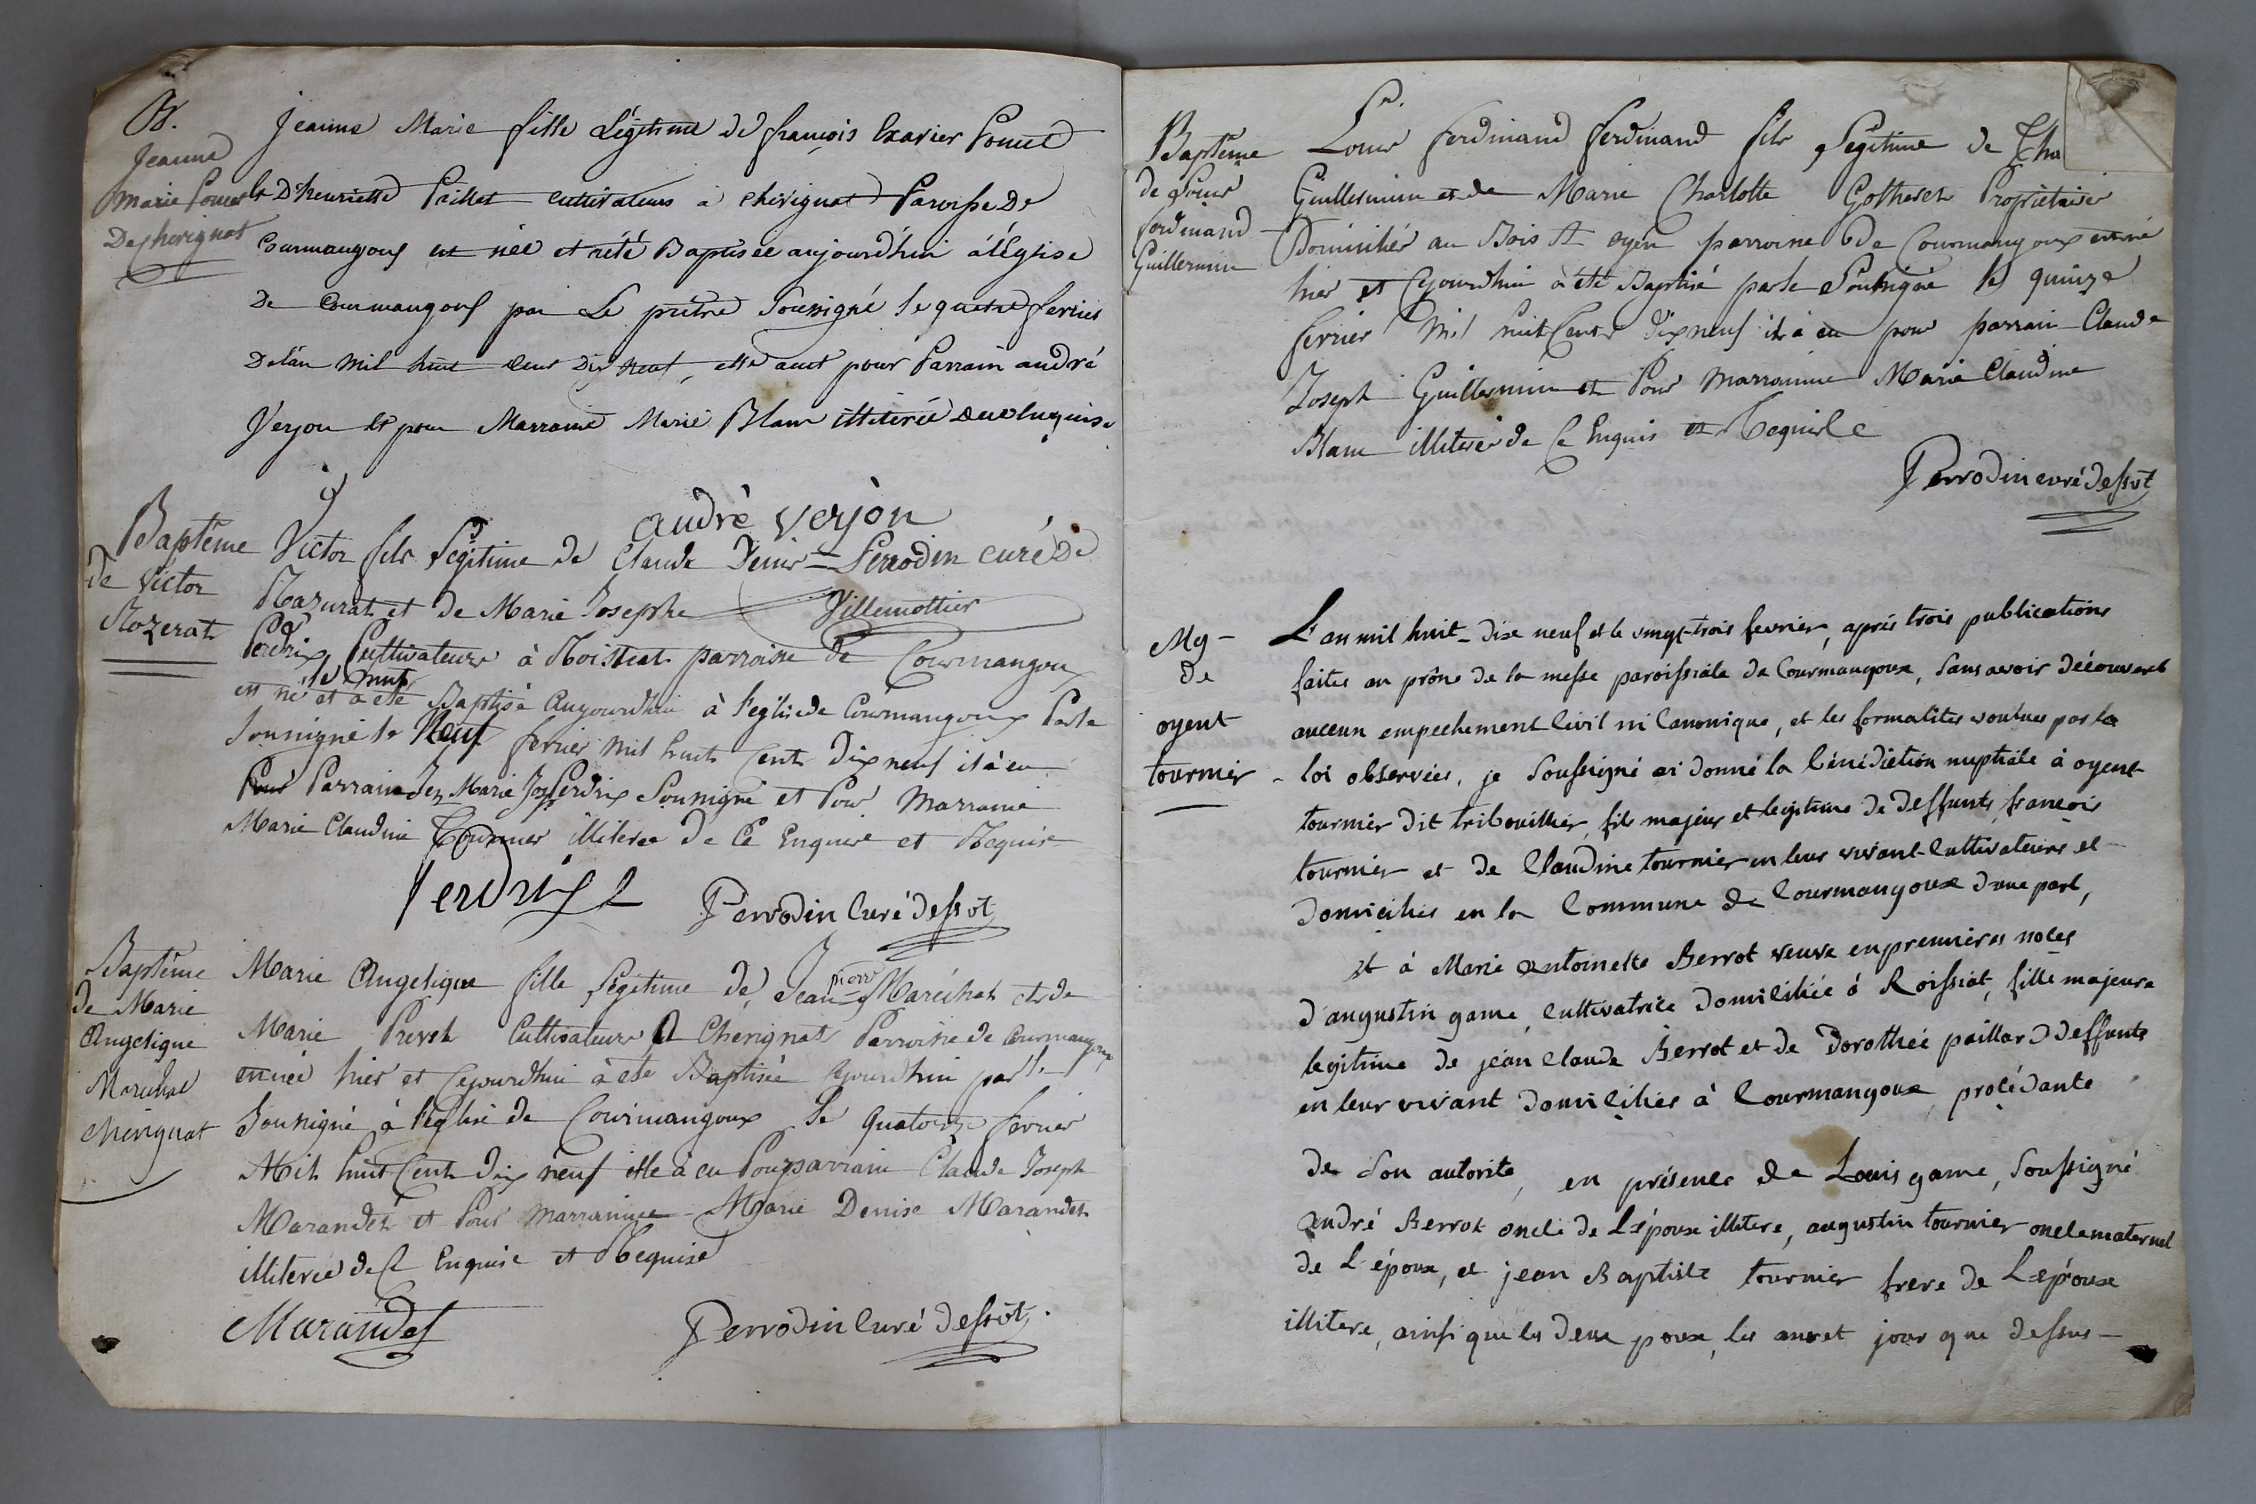 B.
Jeanne
Marie Pomet
De cherignat
Jeanne Marie fille Légitime de françois Exavier Pomet
et D'henriette Paillet cultivateurs a cherignat Paroisse De
Courmangoux est née et aété Baptisée aujourd'hui àl'Eglise
De Courmangoux par Le prêtre Soussigné le quatre fevrier
Delan mil huit cent Dix neuf, elle aeut pour Parrain andré
Verjon et pour Marraine Marie Blanc illiterée de ce Enquise
andrè verjòn
Perrodin curé De
Villemottier
Baptême
de Victor
Mozerat
Victor fils Légitime de Claude Denis
Mazurat et de Marie Josephe
Perdrix Cultivateurs à Roissiat parroisse de Courmangoux
le huit
est né et a eté Baptisé Aujourdhui à l'eglise de Courmangoux Par le
Soussigné le Neuf fevrier mil huit Cent Dix neuf il à eu
Pour Parrain Jen Marie Jos Perdrix Soussigné et Pour Marraine
Marie Claudine Tournier illiteree De Ce Enquise et Requise
Perdrix
Perrodin Curé dessvt
Baptême
de Marie
Angelique
Maréchal
Chérignat
Marie Angelique fille Légitime de Jean pierre Maréchal et de
Marie Prevst Cultivateurs A Chérignat Parroisse de Courmangoux
est née hier et Cejourdhui à eté Baptisée Cejourdhui par le
Soussigné à l'église de Courmangoux le quatorze fevrier
Mil huit Cent Dix neuf elle à eu Pour parrain Claude Joseph
Marandet et Pour Marrainne Marie Denise Marandet
illiterée de Ce Enquise et Requise
Marandet
Perrodin Curé dessvt
Baptême
de Louis
ferdinand
Guillermin
Louis ferdinand ferdinand fils Légitime de Tho
Guillermin et de Marie Charlotte Gotheret Proprietaires
Domiciliés au Bois St oyen parroine de Courmangoux est né
hier et Cejourdhui à eté Baptisé par le Soussigné le quinze
fevrier Mil huit Cent Dix neuf il à eu pour parrain Claude
Joseph Guillermin et Pour Marrainne Marie Claudine
Blanc illiterée de Ce Enquis et Requise
Perrodin curé dessvt
Mg -
de
oyent
tournier
L'an mil huit-dix neuf et le vingt-trois fevrier, aprés trois publications
faites au prône de la messe paroissiale de Courmangoux, sans avoir découvert
aucun empechement civil ni Canonique, et les formalités voulues par la
loi observées, je soussigné ai donné la bénédiction nuptiale à oyent
tournier dit tribouillier, fils majeur et legitime de deffunts françois
tournier et de Claudine tournier en leur vivant cultivateurs et
domiciliés en la Commune de Courmangoux d'une part,
et à Marie antoinette Berrot veuve en premieres noces
d'augustin game, cultivatrice domiciliée à Roissiat, fille majeure
legitime de jean claude Berrot et de Dorothée paillard deffunts
en leur vivant domiciliés à Courmangoux, procédante
de son autorite, en présence de Louis game, soussigné
andré Berrot oncle de L'épouse illitere, augustin tournier oncle maternel
de L'époux, et jean Baptiste tournier frere de L'époux
illitere, ainsi que les deux poux, les an et jour que dessus -